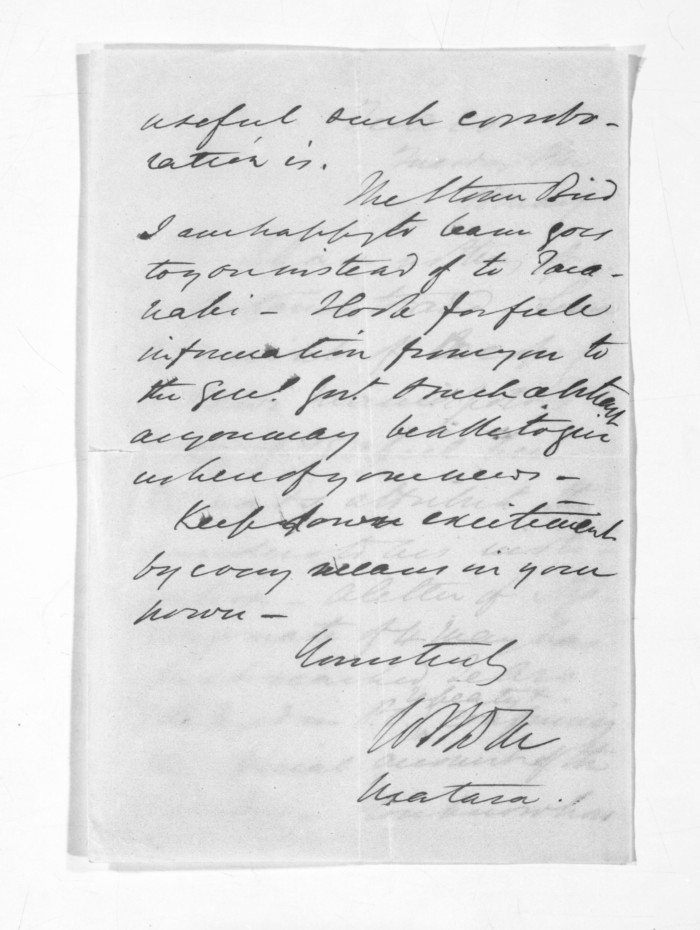 useful such corrobo-
ration is.
The Storm Bird
I am happy to learn goes
to you instead of to Tara-
naki - I look for full
information from you to
the Genl. Govt. & such abstract
as you may be able to give
when of your news -
Keep down excitement
by every means in your
power -
Yours truly
Waitara.